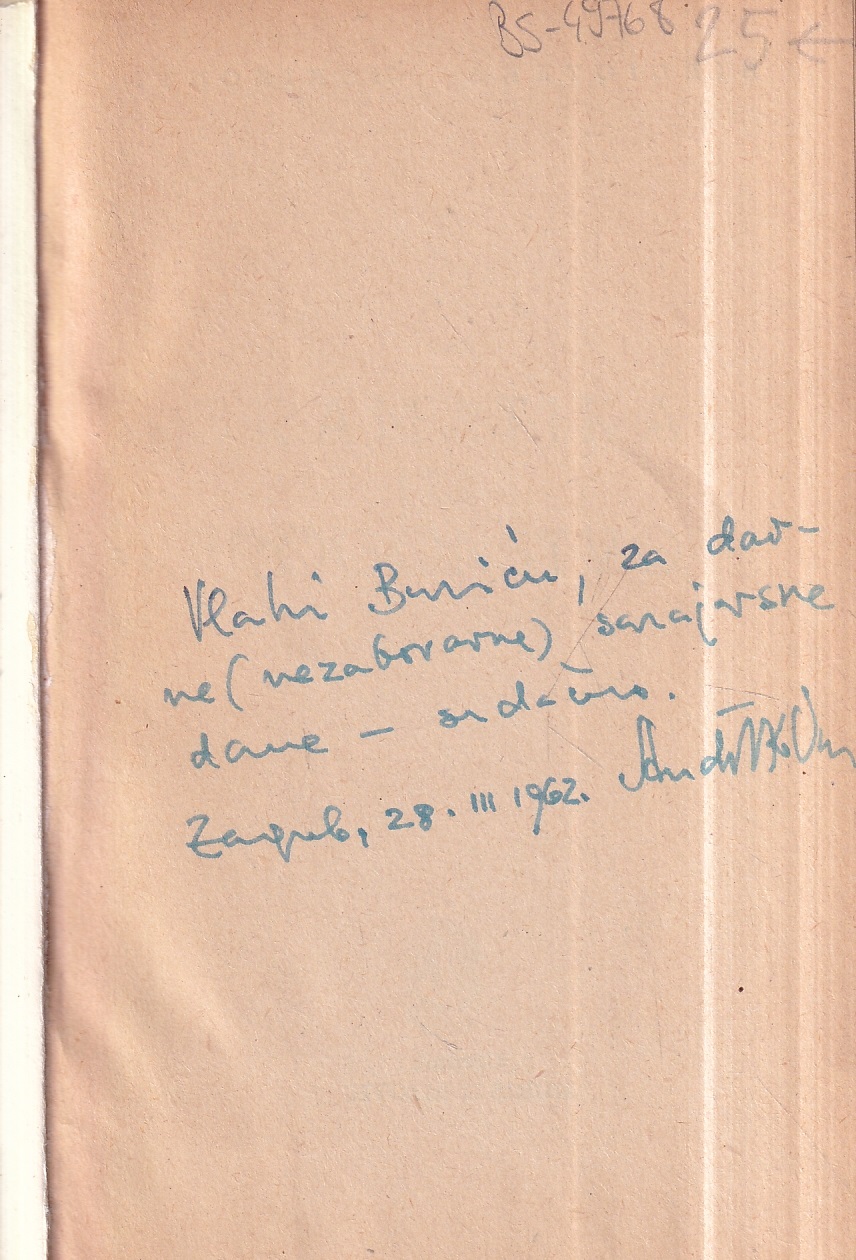 BS-49768 25 ←
Vlahi, za dav-
ne (nezaboravne) sarajevske
dane – srdačno.
Zagreb, 28. III 1962.